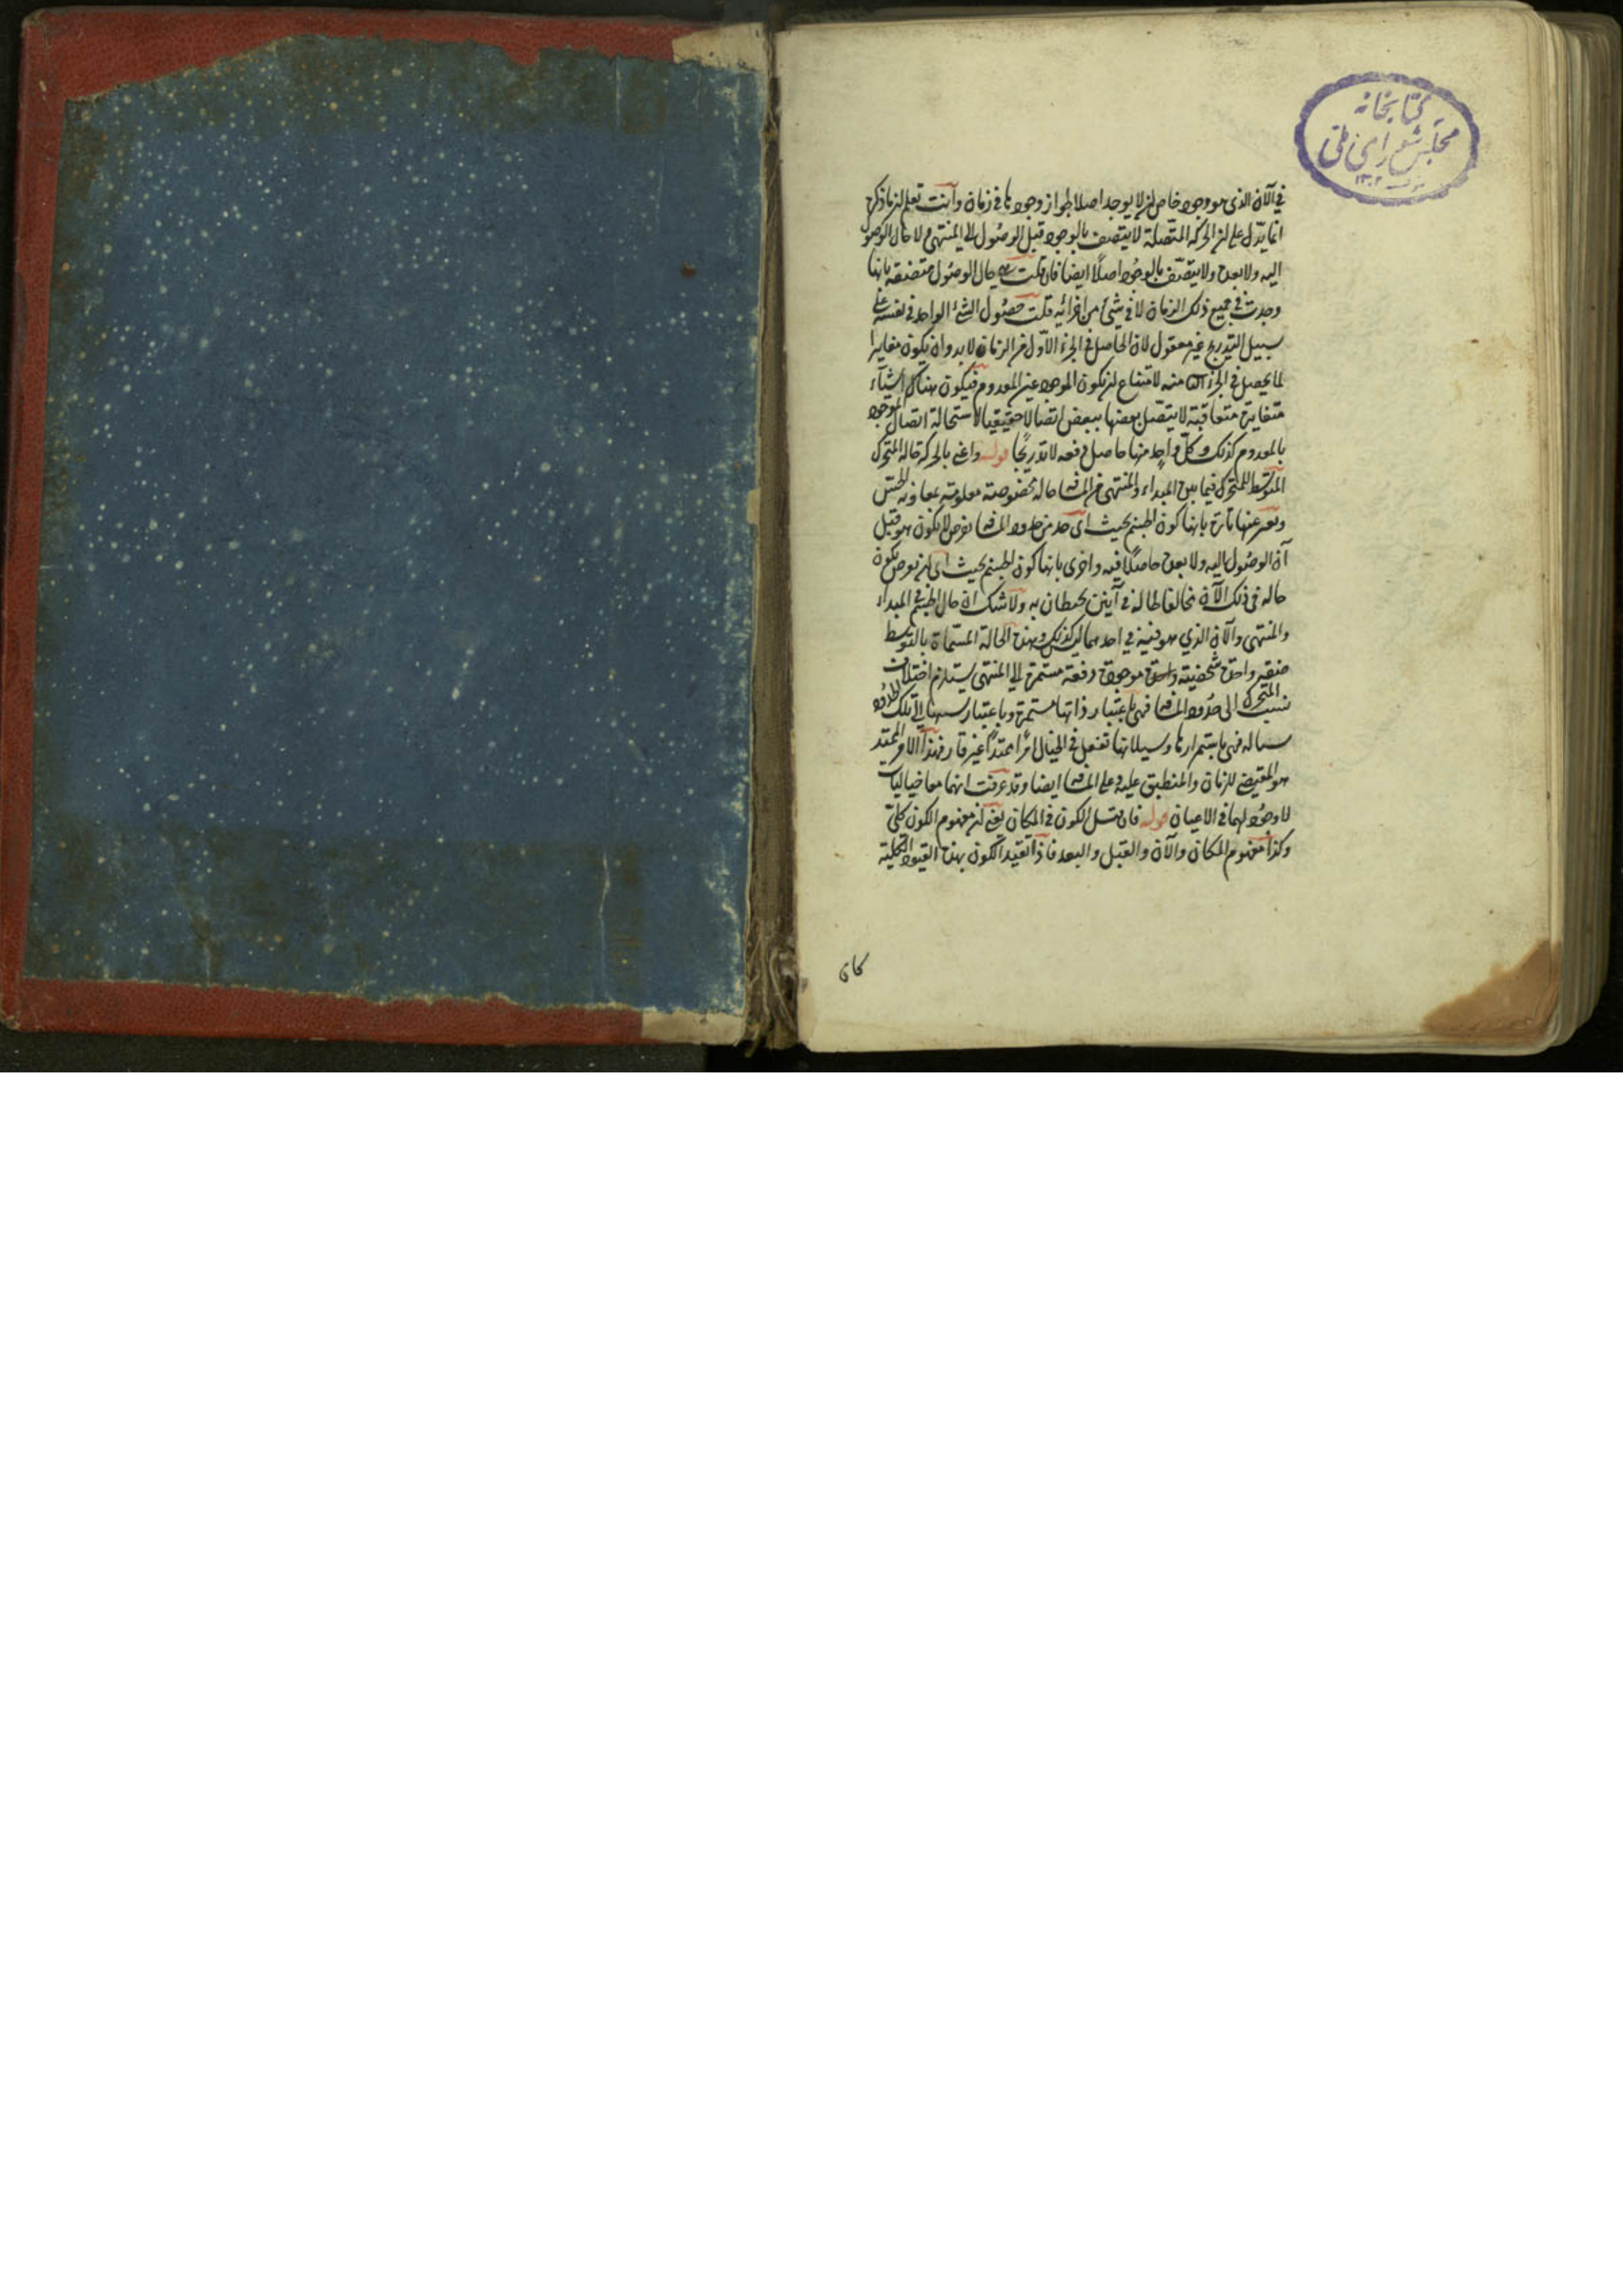 كتابخانه
مجلس شورای ملی
في الآن الذي هو وجود خاص ان لا يوجد اصلا لجواز وجودها في زمان وانت تعلم ان ما ذكره
انما يدل على ان الحركة المتصلة لا يتصف بالوجود قبل الوصول الى المنتهى ولا حال الوصول
اليه ولا بعده ولا يتصف بالوجود اصلًا ايضا فان قلت هي حال الوصول متصفة بانها
وجدت في جميع ذلك الزمان لا في شئ من اجزائه قلت حصول الشئ الواحد في نفسه على
سبيل التدريج غير معقول لان الحاصل في الجزء الاول من الزمان لا بد وان يكون مغايرا
لما يحصل في الجزء الثا منه لامتناع ان يكون الموجود عين المعدوم فيكون هناك اشياء
متغايرة متعاقبة لا يتصل بعضها ببعض اتصالا حقيقيا لاستحالة اتصال الموجود
بالمعدوم كذلك وكل واحد منها حاصل دفعه لا تدريجًا قوله واعني بالحركة حالة المتحرك
المتوسط للمتحرك فيما بين المبداء والمنتهى من المسافه حاله مخصوصة معلومة بمعاونة الحس
ويعبر عنها تارة بانها كون الجسم بحيث اي حد من حدود المسافه يفرض لا يكون هو قبل
آن الوصول اليه ولا بعده حاصلًا فيه واخرى بانها كون الجسم بحيث اي آن يفرض يكون
حاله في ذلك الآن مخالفا لحاله في آنين يحيطان به ولا شك ان حال الجسم في المبداء
والمنتهى والآن الذي هو فيه في احدهما ليس كذلك وهذه الحالة المسماة بالتوسط
صفة واحدة شخصية موجودة دفعة مستمرة الى المنتهى يستلزم اختلاف
نسب المتحرك الى حدود المسافه فهي باعتبار ذاتها مستمرة وباعتبار نسبها الى تلك الحدود
سياله فهي باستمرارها وسيلانها تفعل في الخيال امرًا ممتدًا غير قار فهذا الامر الممتد
هو المقتضي للزمان والمنطبق عليه وعلى المسافه ايضا وقد عرفت انهما معا خياليات
لا وجود لهما في الاعيان قوله فان مثل الكون في المكان يعني ان مفهوم الكون كلي
وكذا مفهوم المكان والآن والقبل والبعد فاذا تقيد الكون بهذه القيود الكلية
كان